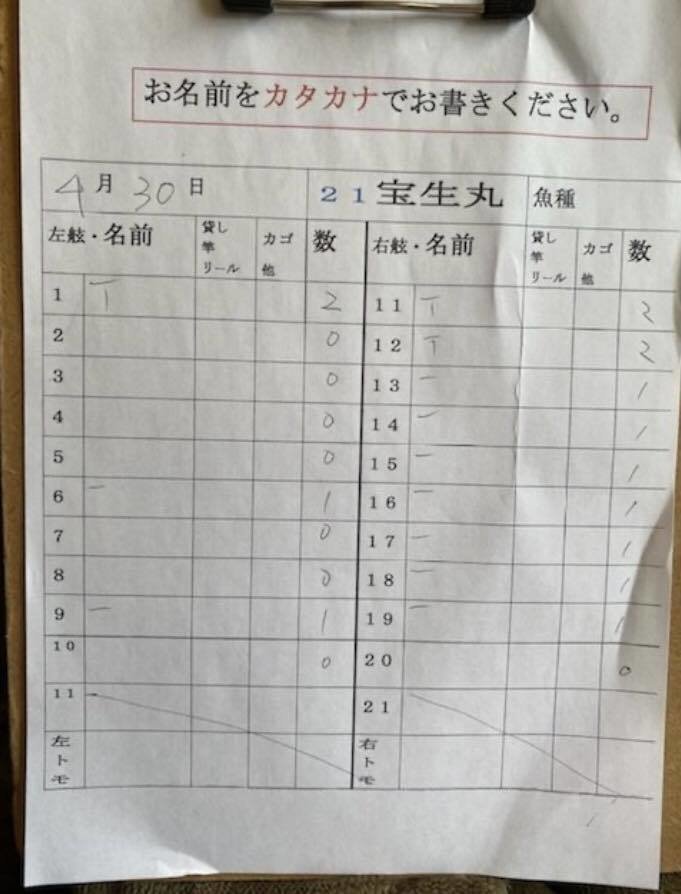 お名前をカタカナでお書きください。
4月30日 21宝生丸 魚種
左舷・名前 貸し竿リール カゴ他 数 右舷・名前 貸し竿リール カゴ他 数
1 T 2 11 T 2
2 0 12 T 2
3 0 13 一 1
4 0 14 一 1
5 0 15 一 1
6 一 1 16 一 1
7 0 17 一 1
8 0 18 一 1
9 一 1 19 一 1
10 0 20 0
11 21
左トモ 右トモ